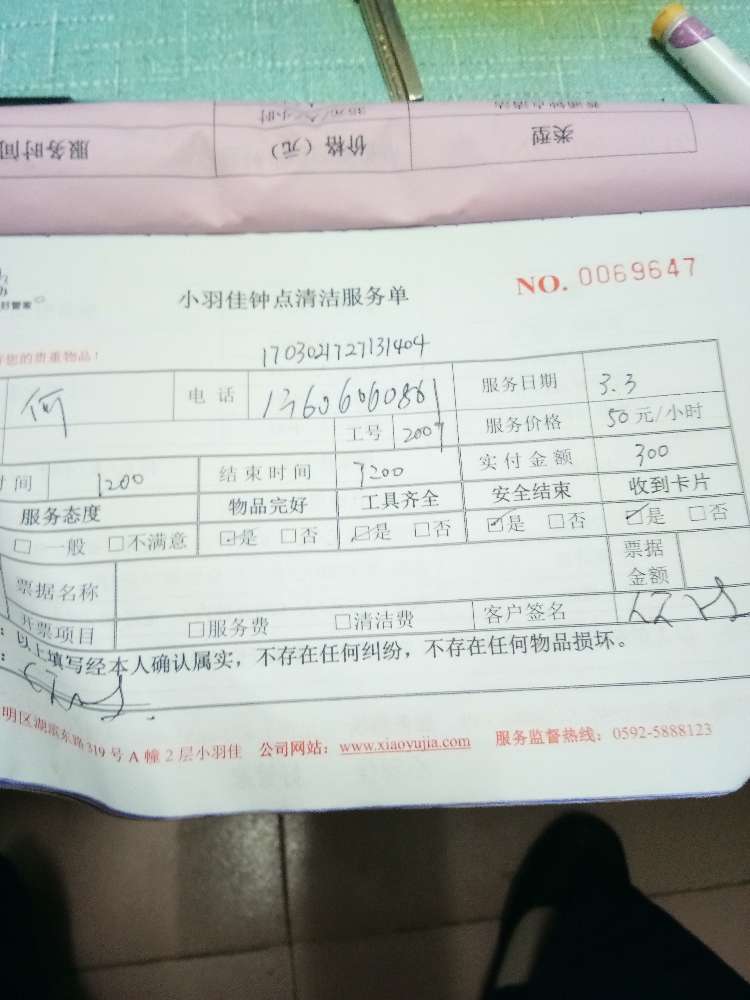 服务时间 价格（元） 类型
好管家
小羽佳钟点清洁服务单 NO. 0069647
您的贵重物品！
1703021727131404
何 电话 13606060861 服务日期 3.3
工号 2007 服务价格 50元/小时
时间 1200 结束时间 实付金额 300
服务态度 物品完好 工具齐全 安全结束 收到卡片
□ 一般 □不满意 ☑是 □否 ☑是 □否 ☑是 □否 ☑是 □否
票据名称 票据金额
开票项目 □服务费 □清洁费 客户签名
以上填写经本人确认属实，不存在任何纠纷，不存在任何物品损坏。
明区湖滨东路319号A幢2层小羽佳 公司网站：www.xiaoyujia.com 服务监督热线：0592-5888123